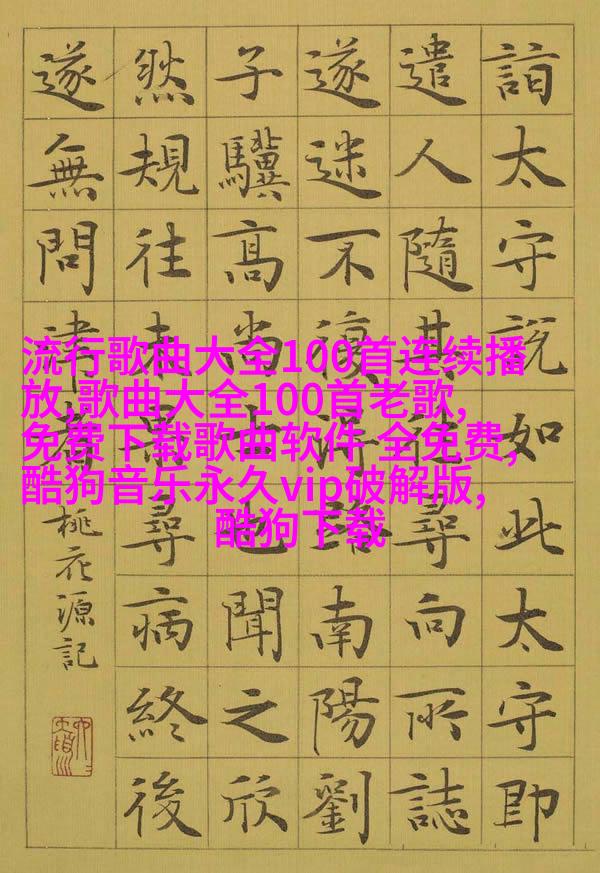 詣太守說如此太守即
遣人隨其往尋向所誌
遂迷不復得路南陽劉
子驥高尚士也聞之欣
然規往未果尋病終後
遂無問津者
桃花源記
流行歌曲大全100首连续播
放,歌曲大全100首老歌,
免费下载歌曲软件 全免费,
酷狗音乐永久vip破解版,
酷狗下载